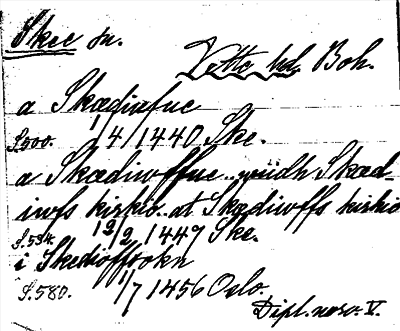 Skee sn.
Vette hd, Boh.
a Skædiufue
S.500. 1/4 1440 Ske.
a Skædiwffue .. widh Skæd-
iwfs kirkio .. at Skædiwffs kirkio
S.534. 12/2 1447 Ske.
i Skedioffsokn
S.580. 1/7 1456 Oslo.
Dipl. norv. V.